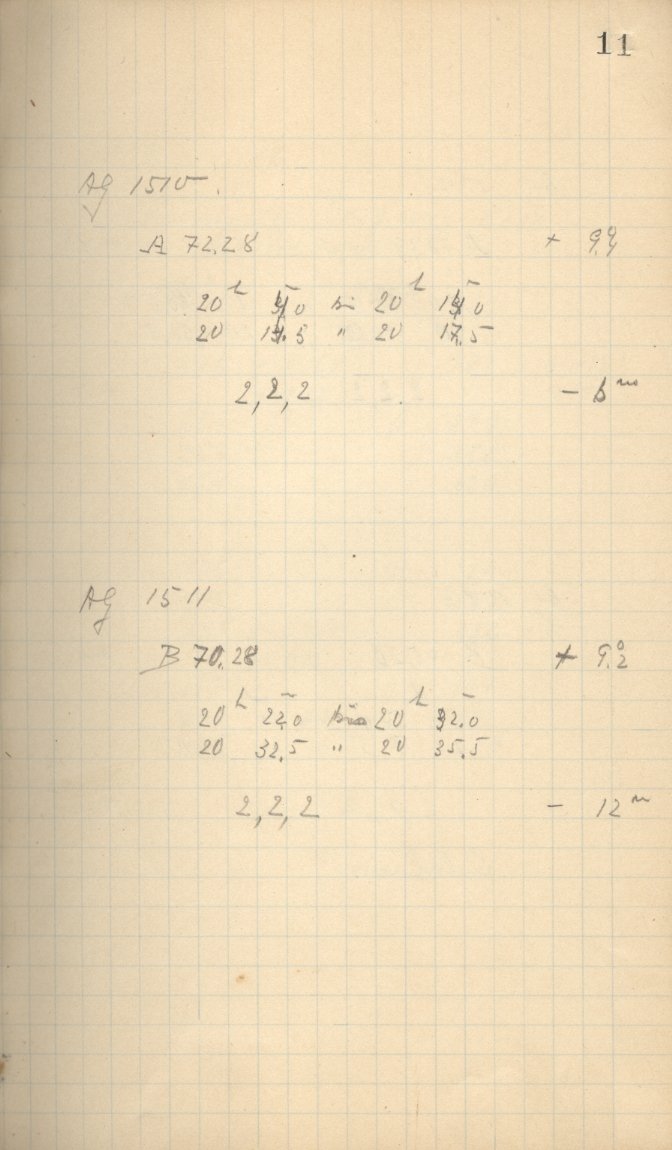 11
AG 1510
A 72.28 + 9°.4
20 h 4.0 bis 20 h 14.0
20 14.5 " 20 17.5
2, 2, 2 — m
AG 1511
B 70.28 + 9°.2
20 h 22.0 bis 20 h 32.0
20 32.5 " 20 35.5
2, 2, 2 — 12 m